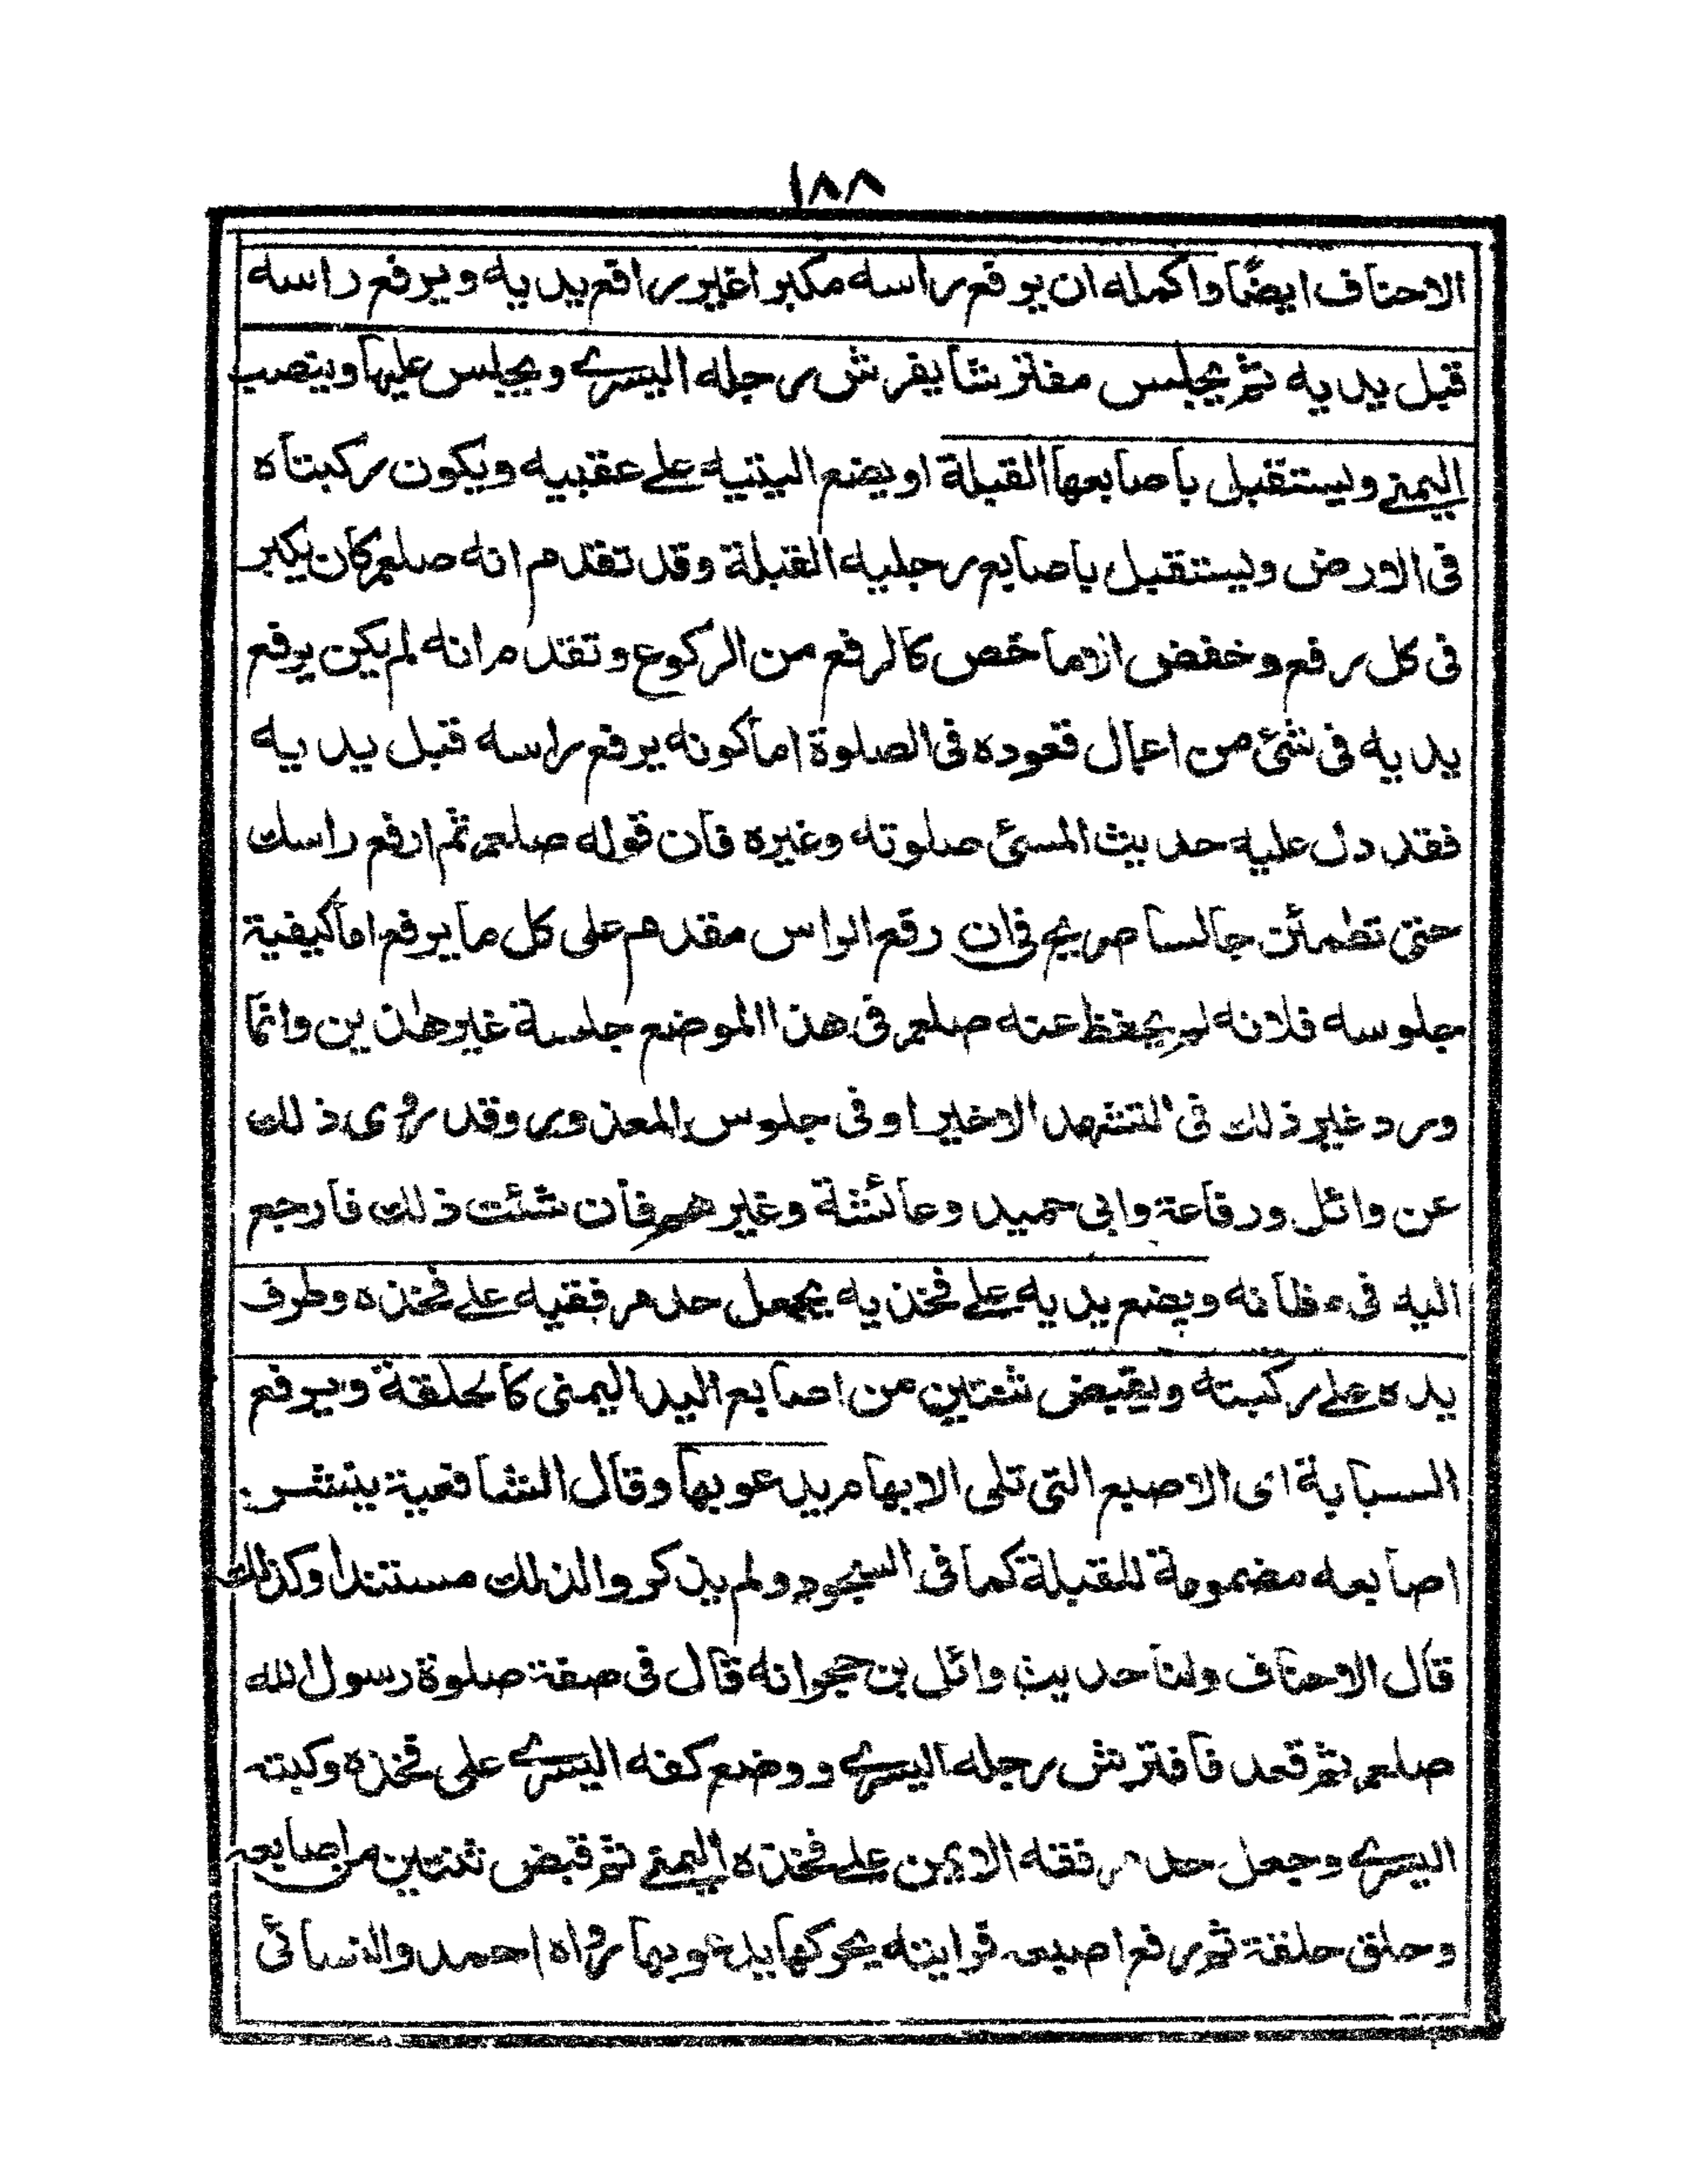 ١٨٨
الاحناف ايضًا واكمله ان يرفع راسه مكبرا غير رافع يديه ويرفع راسه
قبل يديه ثم يجلس مفترشا يفرش رجله اليسرے ويجلس عليها وينصب
اليمنے ويستقبل باصابعها القبلة او يضع اليتيه علے عقبيه ويكون ركبتاه
فى الارض ويستقبل باصابع رجليه القبلة وقد تقدم انه صلعم كان يكبر
فى كل رفع وخفض الاما خص كالرفع من الركوع وتقدم انه لم يكن يرفع
يديه فى شئ من اعمال قعوده فى الصلوة اما كونه يرفع راسه قبل يديه
فقد دل عليه حديث المسئ صلوته وغيره فان قوله صلعم ثم ارفع راسك
حتى تطمئن جالسا صريح فى ان رفع الراس مقدم على كل ما يرفع اما كيفية
جلوسه فلانه لم يحفظ عنه صلعم فى هذا الموضع جلسة غير هاذين وانما
ورد غير ذلك فى التشهد الاخير او فى جلوس المعذور وقد روى ذلك
عن وائل ورفاعة وابى حميد وعائشة وغيرهم فان شئت ذلك فارجع
اليه فى مظانه ويضع يديه علے فخذيه يجعل حد مرفقيه علے فخذه وطرف
يده علے ركبته ويقبض ثنتين من اصابع اليد اليمنى كالحلقة ويرفع
السبابة اى الاصبع التى تلى الابهام يدعو بها وقال الشافعية ينشر
اصابعه مضمومة للقبلة كما فى السجود ولم يذكروا لذلك مستندا وكذلك
قال الاحناف ولنا حديث وائل بن حجر انه قال فى صفة صلوة رسول الله
صلعم ثم قعد فافترش رجله اليسرے ووضع كفه اليسرے على فخذه وركبته
اليسرے وجعل حد مرفقه الايمن علے فخذه اليمنے ثم قبض ثنتين من اصابعه
وحلق حلقة ثم رفع اصبعه فرايته يحركها يدعو بها رواه احمد والنسائى